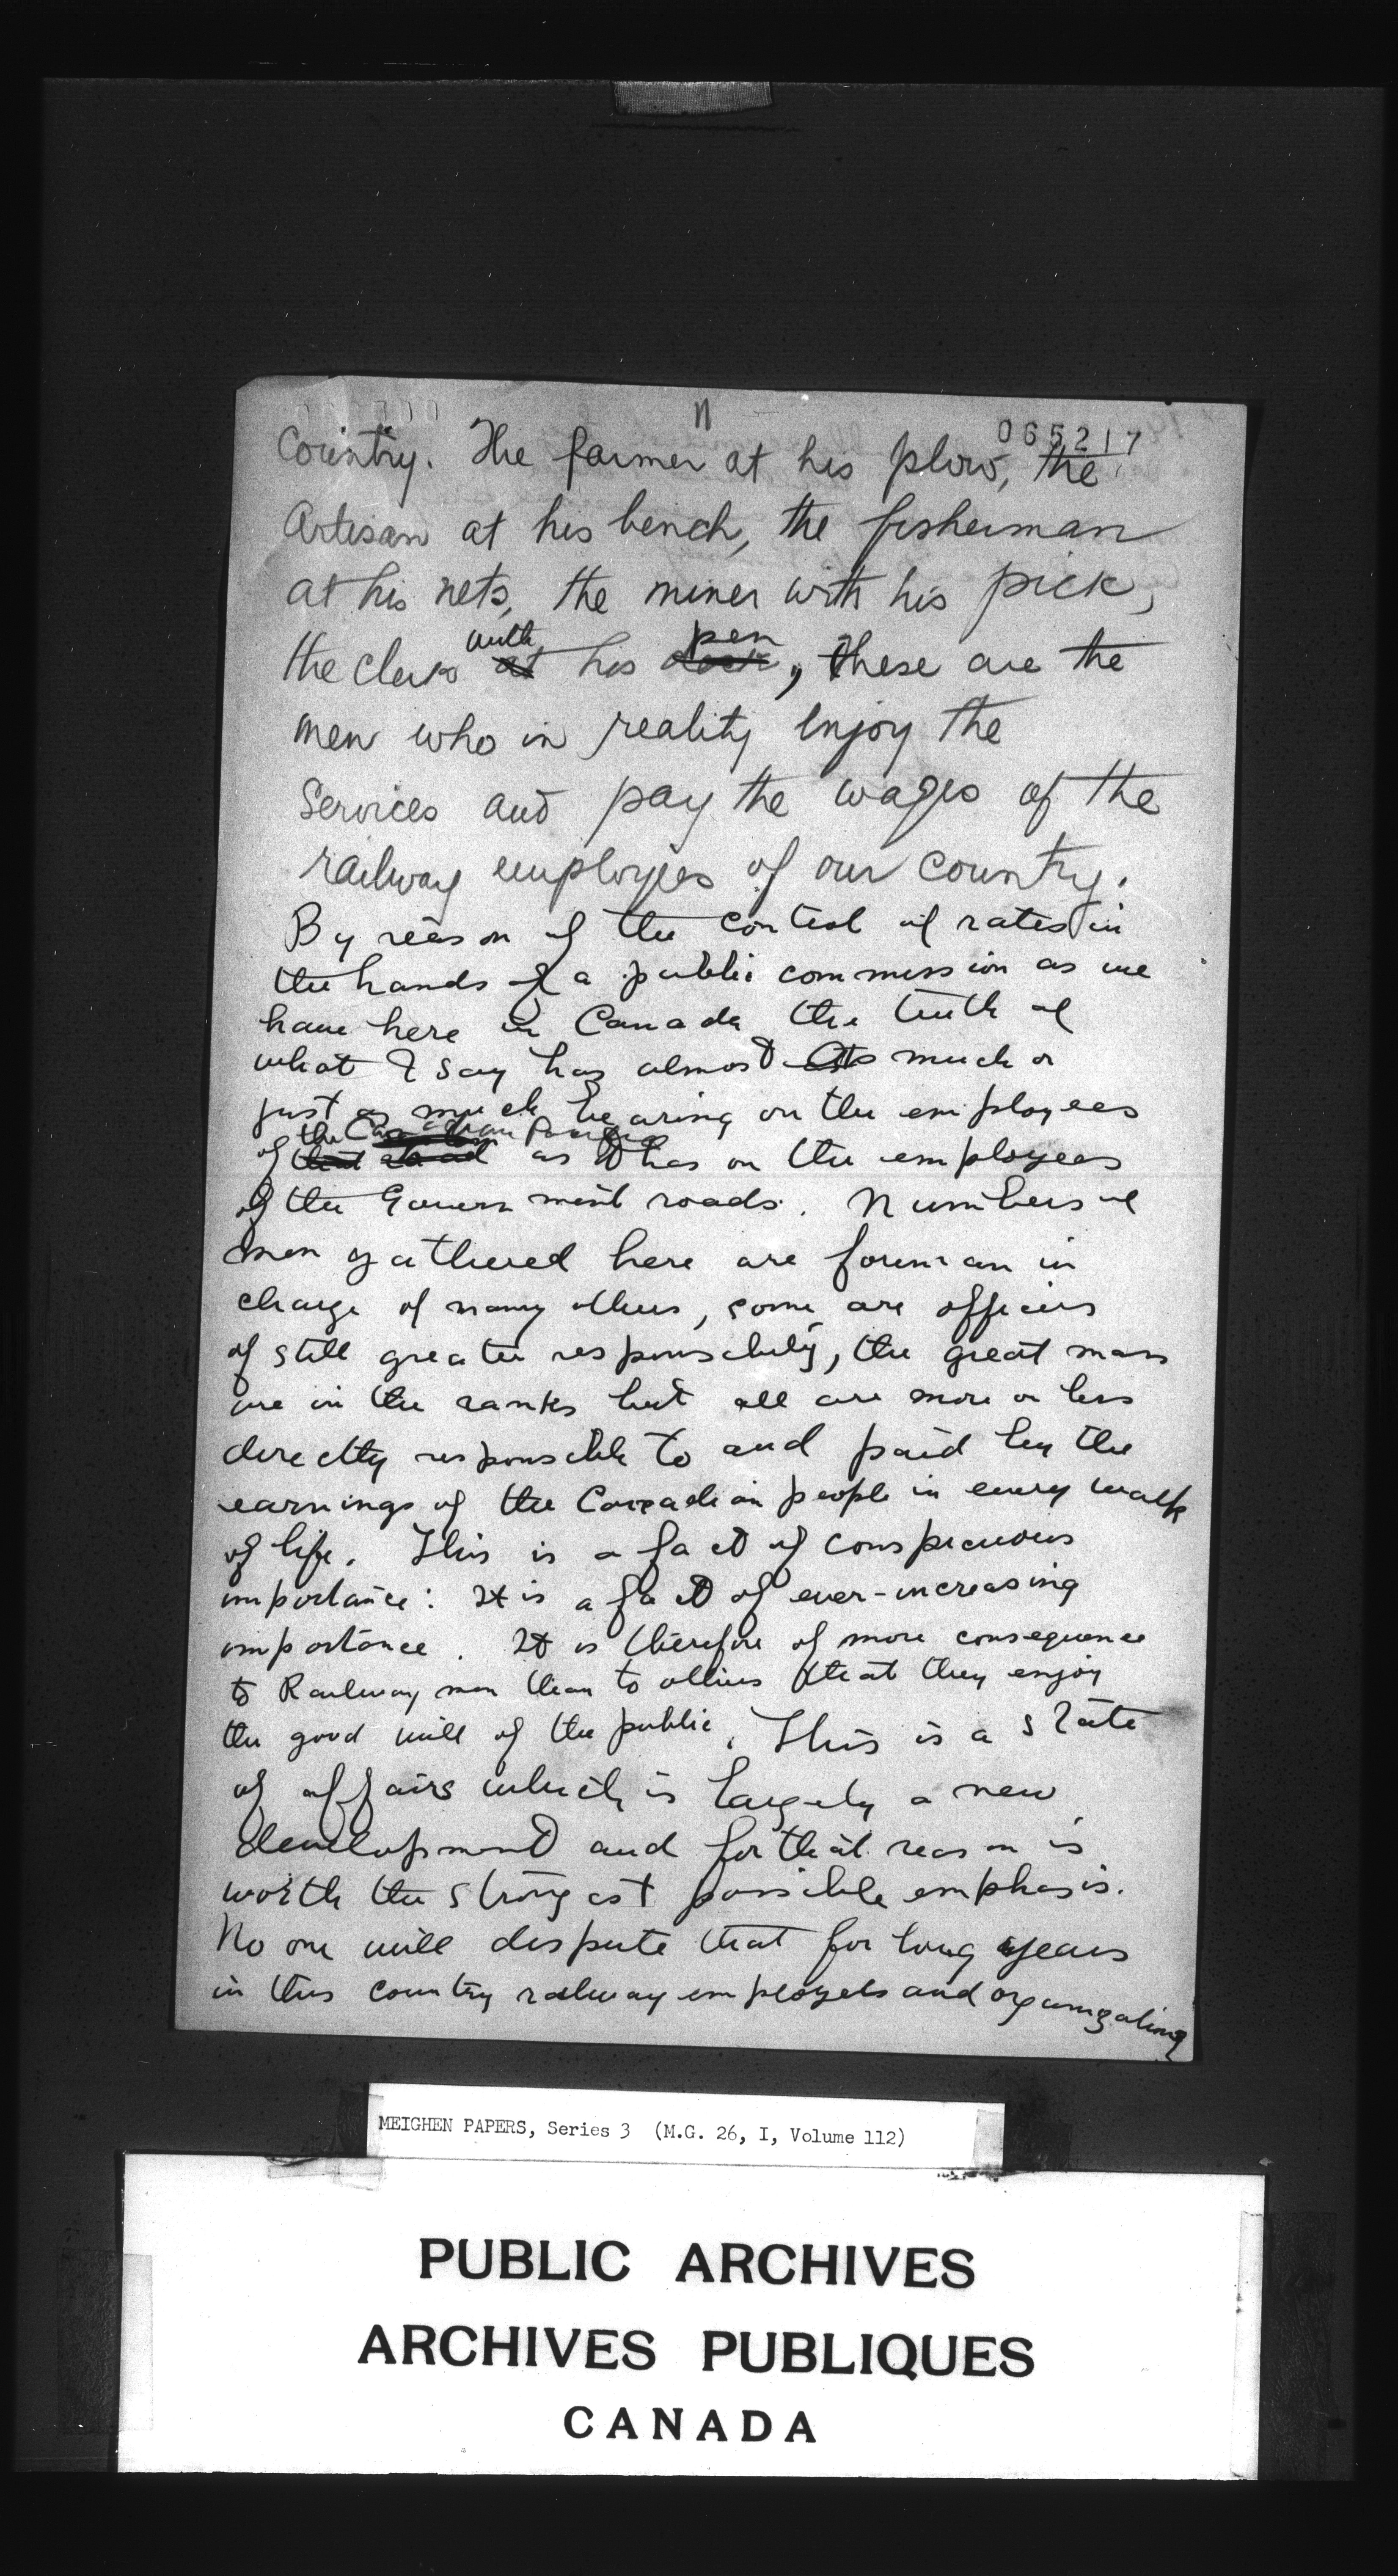 11
065217
Country. The farmer at his plow, the
Artisan at his bench, the fisherman
at his nets, the miner with his pick,
with pen
the clerk at his desk, these are the
men who in reality enjoy the
Services and pay the wages of the
railway employees of our country.
By reason of the control of rates in
the hands of a public commission as we
have here in Canada the truth of
what I say has almost as much or
just as much bearing on the employees
the Canadian Pacific
of as it has on the employees
of the Government roads. Numbers of
men gathered here are foreman in
charge of many others, some are officers
of still greater responsibility, the great mass
are in the ranks but all are more or less
directly responsible to and paid by the
earnings of the Canadian people in every walk
of life. This is a fact of conspicuous
importance: It is a fact of ever-increasing
importance. It is therefore of more consequence
to Railway men than to others that they enjoy
the good will of the public. This is a state
of affairs which is largely a new
development and for that reason is
worth the strongest possible emphasis.
No one will dispute that for long years
in this country railway employees and organizations
MEIGHEN PAPERS, Series 3 (M.G. 26, I, Volume 112)
PUBLIC ARCHIVES
ARCHIVES PUBLIQUES
CANADA